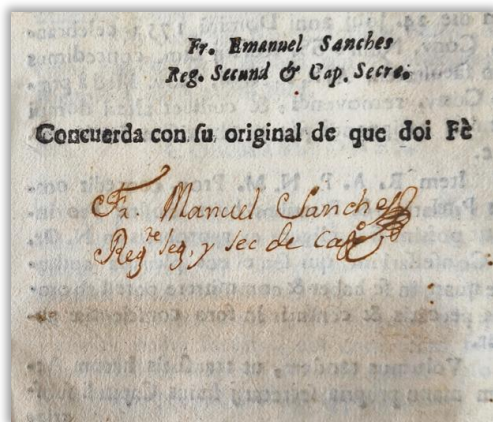 Fr. Emanuel Sanches
Reg. Secund & Cap. Secre.
Concuerda con ſu original de que doi Fè
Fr. Manuel Sanches
Reg.te seg, y sec de Capo